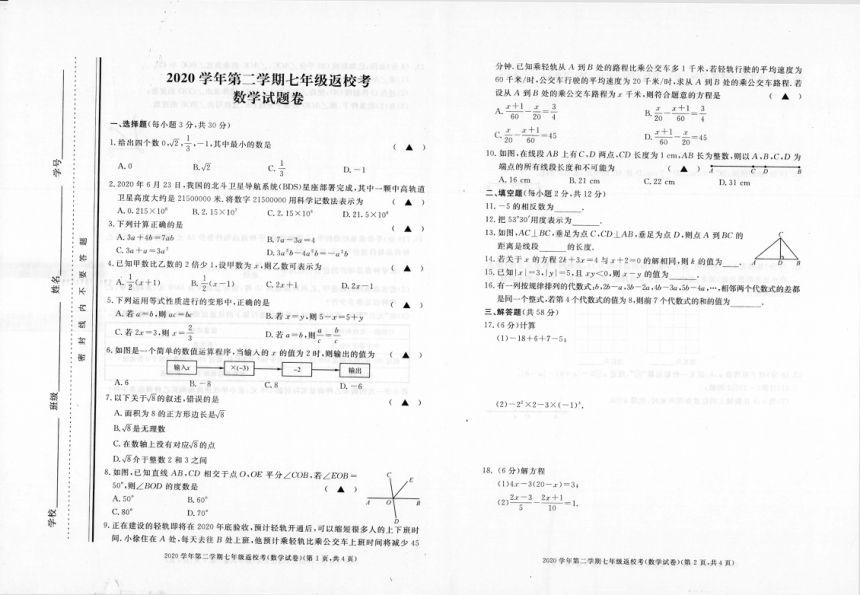 2020学年第二学期七年级返校考
数学试题卷
一、选择题(每小题3分,共30分)
1.给出四个数0,√2,1/3,-1,其中最小的数是 ( ▲ )
A.0 B.√2 C.1/3 D.-1
2.2020年6月23日,我国的北斗卫星导航系统(BDS)星座部署完成,其中一颗中高轨道
卫星高度大约是21500000米.将数字21500000用科学记数法表示为 ( ▲ )
A.0.215×10⁸ B.2.15×10⁷ C.2.15×10⁶ D.21.5×10⁶
3.下列计算正确的是 ( ▲ )
A.3a+4b=7ab B.7a-3a=4
C.3a+a=3a² D.3a²b-4a²b=-a²b
4.已知甲数比乙数的2倍少1,设甲数为x,则乙数可表示为 ( ▲ )
A.1/2(x+1) B.1/2(x-1) C.2x+1 D.2x-1
5.下列运用等式性质进行的变形中,正确的是 ( ▲ )
A.若a=b,则ac=bc B.若x=y,则5-x=5+y
C.若2x=3,则x=2/3 D.若a=b,则a/c=b/c
6.如图是一个简单的数值运算程序,当输入的x的值为2时,则输出的值为 ( ▲ )
输入x ×(-3) -2 输出
A.6 B.-8 C.8 D.-6
7.以下关于√8的叙述,错误的是 ( ▲ )
A.面积为8的正方形边长是√8
B.√8是无理数
C.在数轴上没有对应√8的点
D.√8介于整数2和3之间
8.如图,已知直线AB,CD相交于点O,OE平分∠COB,若∠EOB=
50°,则∠BOD的度数是 ( ▲ )
A.50° B.60°
C.80° D.70°
C E A O B D
9.正在建设的轻轨即将在2020年底验收,预计轻轨开通后,可以缩短很多人的上下班时
间.小徐住在A处,每天去往B处上班,他预计乘轻轨比乘公交车上班时间将减少45
2020学年第二学期七年级返校考(数学试卷)(第1页,共4页)
学号
姓名
班级
学校
密封线内不要答题
分钟.已知乘轻轨从A到B处的路程比乘公交车多1千米,若轻轨行驶的平均速度为
60千米/时,公交车行驶的平均速度为20千米/时,求从A到B处的乘公交车路程.若
设从A到B处的乘公交车路程为x千米,则符合题意的方程是 ( ▲ )
A.(x+1)/60-x/20=3/4 B.x/20-(x+1)/60=3/4
C.x/20-(x+1)/60=45 D.(x+1)/60-x/20=45
10.如图,在线段AB上有C,D两点,CD长度为1 cm,AB长为整数,则以A,B,C,D为
端点的所有线段长度和不可能为 ( ▲ )
A C D B
A.16 cm B.21 cm C.22 cm D.31 cm
二、填空题(每小题2分,共12分)
11.-5的相反数为______.
12.把53°30′用度表示为______.
13.如图,AC⊥BC,垂足为点C,CD⊥AB,垂足为点D,则点A到BC的
距离是线段______的长度.
C A D B
14.若关于x的方程2k+3x=4与x+2=0的解相同,则k的值为______.
15.已知|x|=3,|y|=5,且xy<0,则x-y的值为______.
16.有一列按规律排列的代数式:b,2b-a,3b-2a,4b-3a,5b-4a,…,相邻两个代数式的差都
是同一个整式,若第4个代数式的值为8,则前7个代数式的和的值为______.
三、解答题(共58分)
17.(6分)计算
(1)-18+6+7-5;
(2)-2²×2-3×(-1)³.
18.(6分)解方程
(1)4x-3(20-x)=3;
(2)(2x-3)/5-(2x+1)/10=1.
2020学年第二学期七年级返校考(数学试卷)(第2页,共4页)